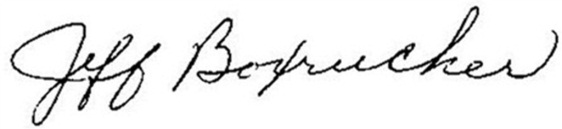 Jeff Boxrucker